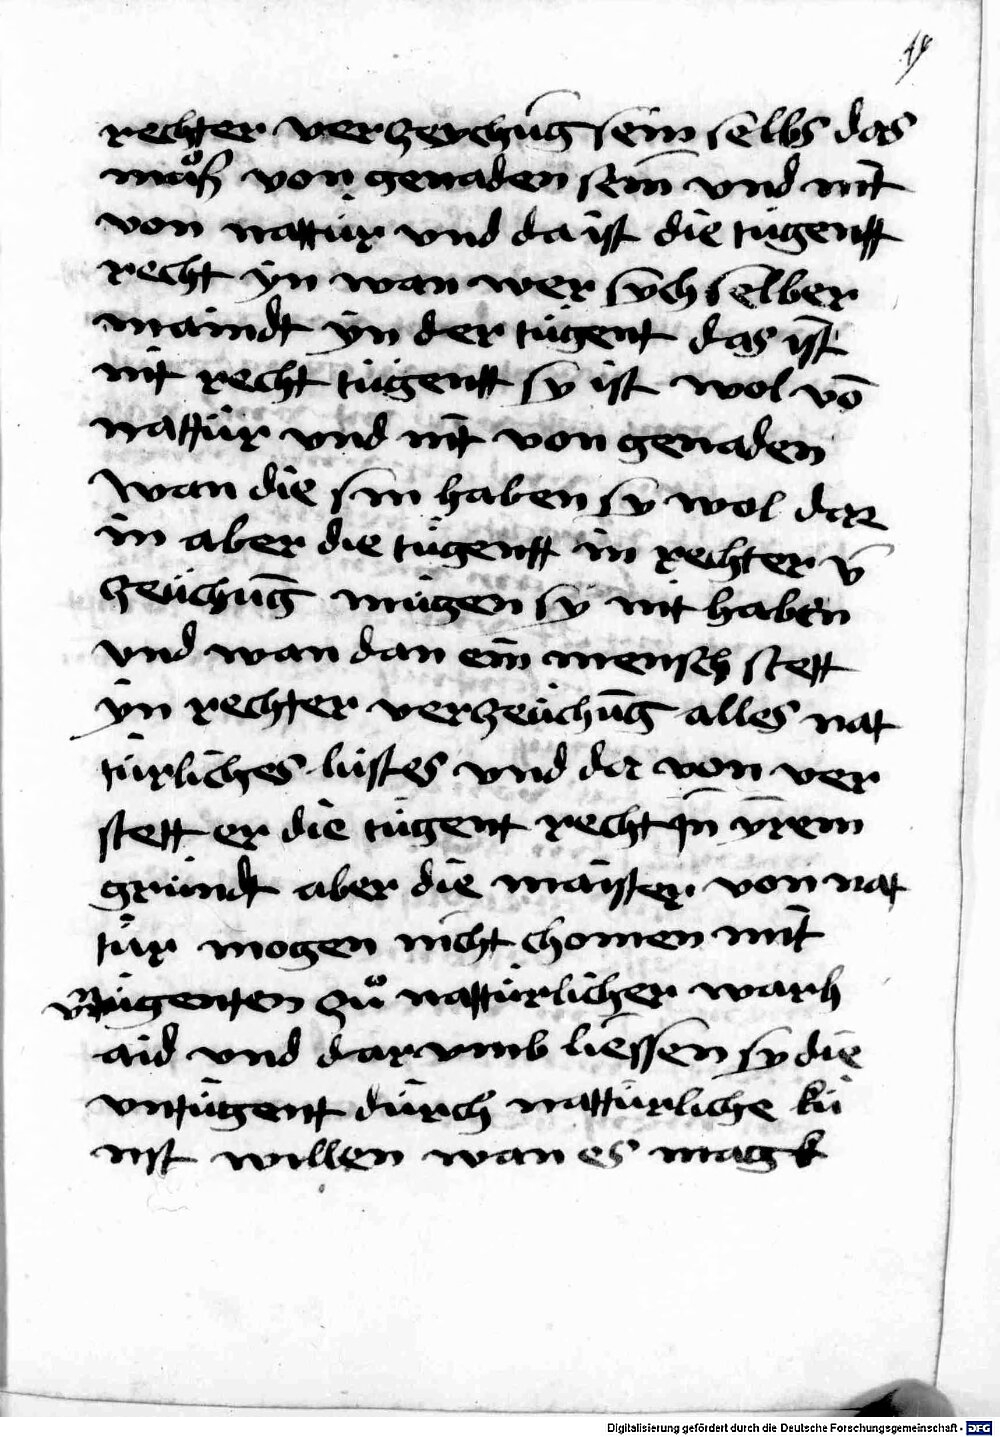 49
rechter verzeychūg sein selbs das
muͦß von genaden sein̄ vnd nit̄
von nattur vnd da ist die tugentt
recht yn wan wer sych selber
maindt yn der tugent das ist
nit recht tugentt sy ist wol vō
nattur vnd nit̄ von genaden
wan die sin haben sy wol dar
in aber die tugentt in rechter v̄
zeüchūg mügen sy nit haben
vnd wan dan ein̄ mensch stett
yn rechter verzeüchūg alles nat
türliches lustes vnd da von ver
stett er die tugent recht in yrem
grundt aber die maister von nat
tur mogen nicht chomen mit̄
vntugenten zuͦ natturlicher warh
aid vnd darvmb liessen sy die
vntugent durch natturliche kü
nst willen wan es mag k
Digitalisierung gefördert durch die Deutsche Forschungsgemeinschaft - DFG